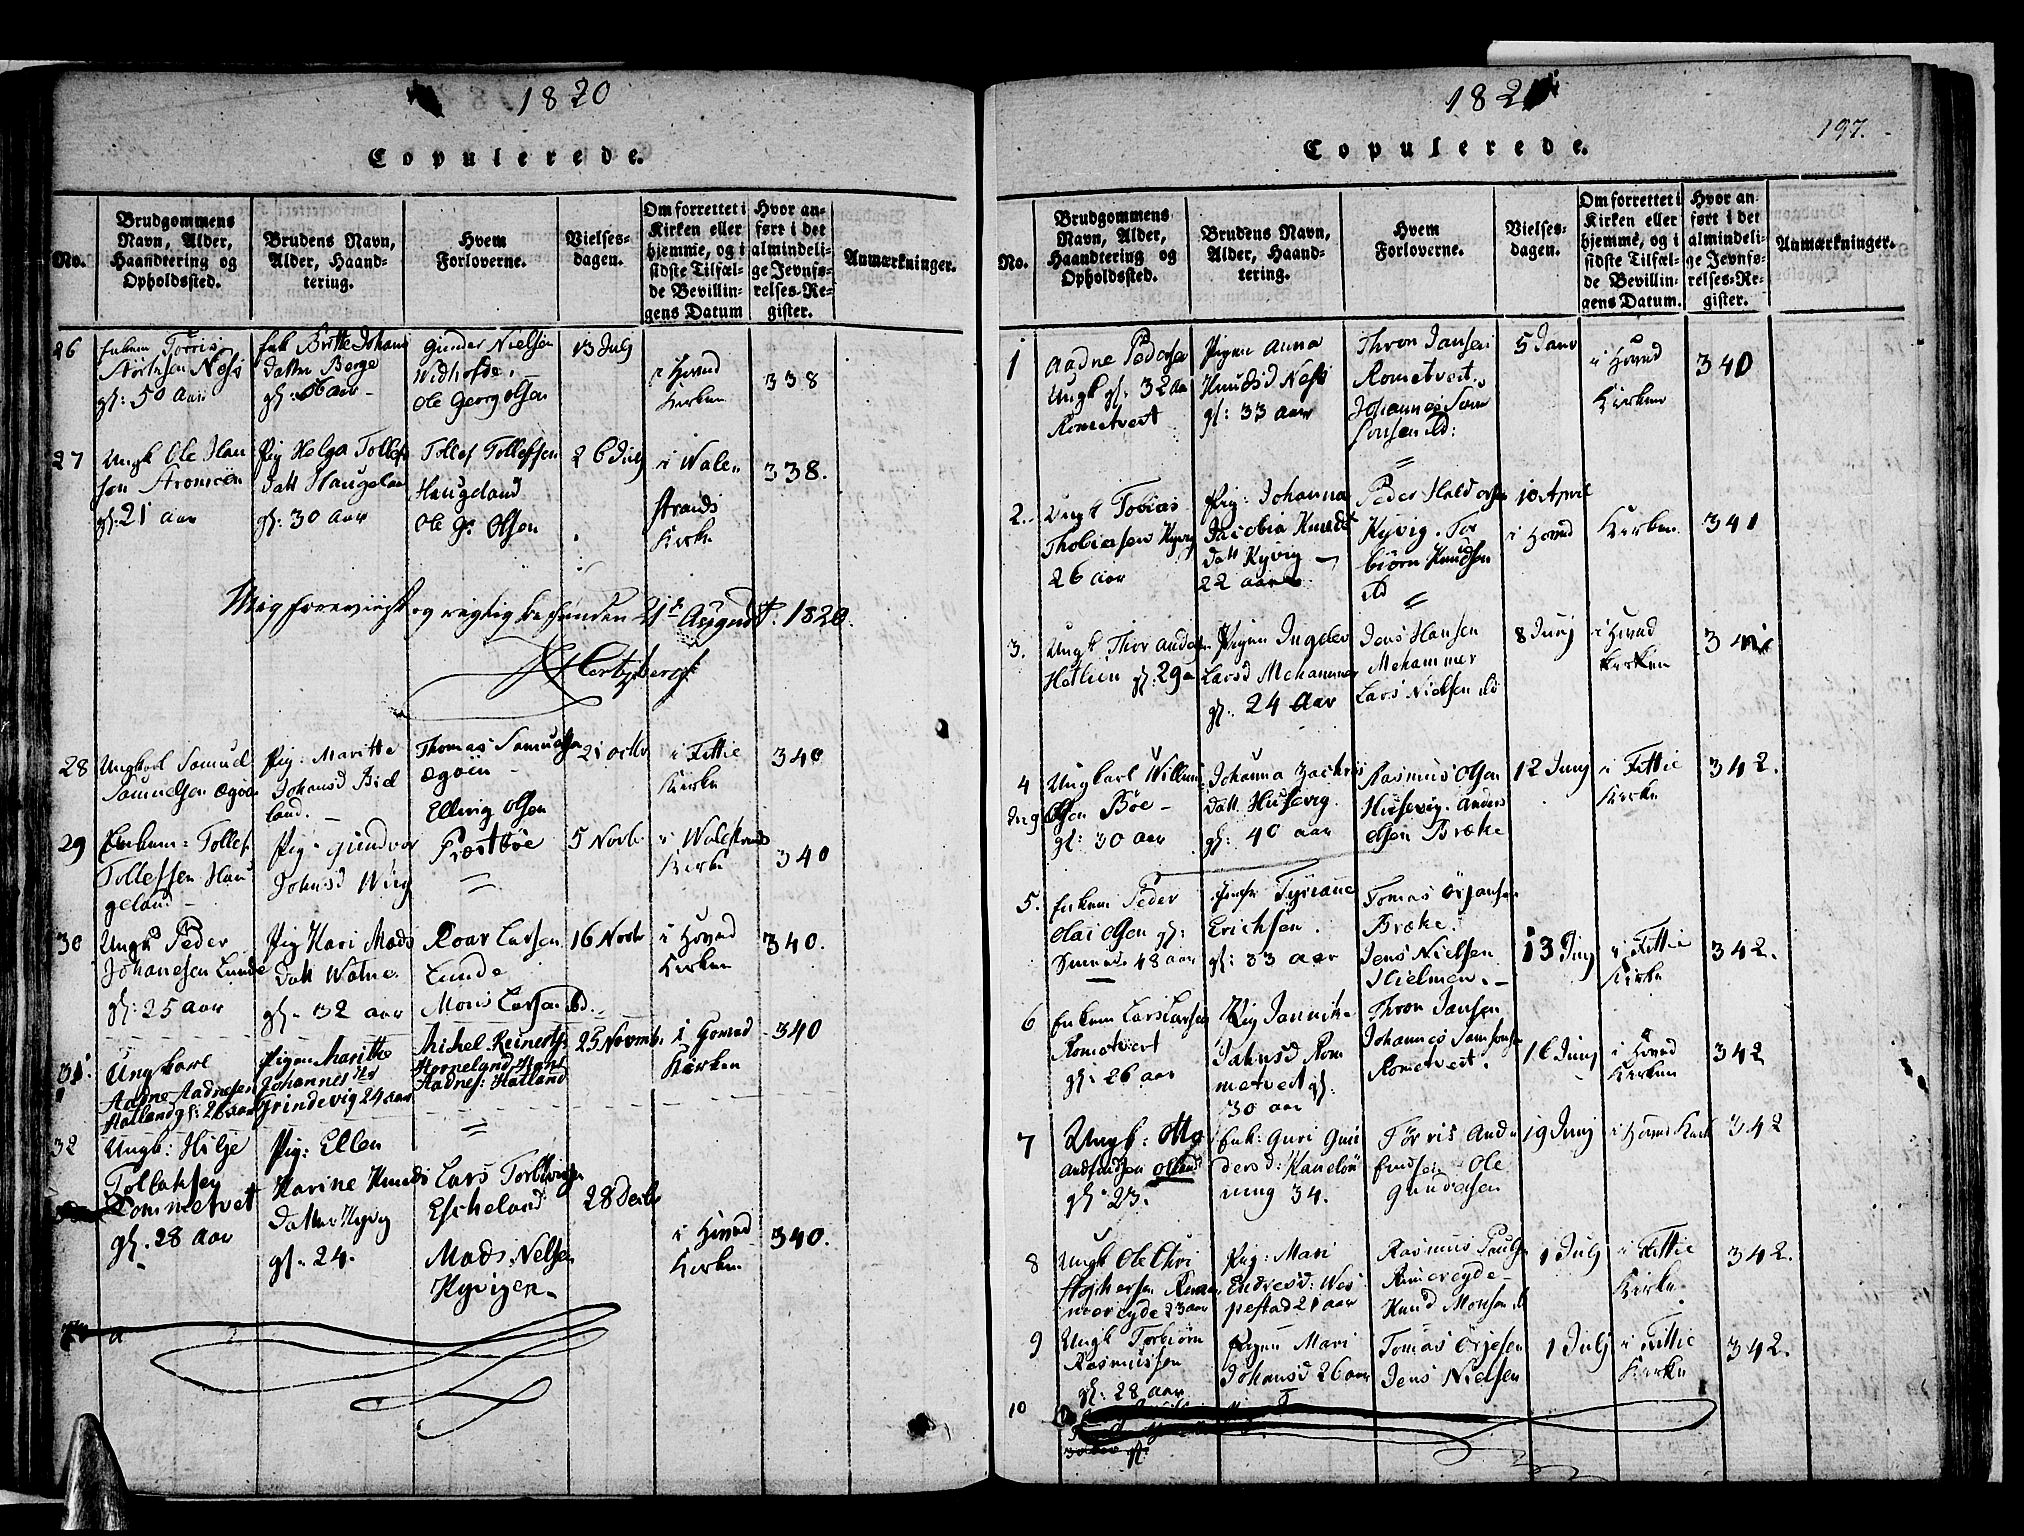 1820
Copulerede.
No.
Brudgommens
Navn, Alder,
Haandtering og
Opholdssted.
Brudens Navn,
Alder, Haand-
tering.
Hvem
Forloverne.
Vielses-
dagen.
Om forrettet i
Kirken eller
hjemme, og i
sidste Tilfæl-
de Bevillin-
gens Datum
Hvor an-
ført i det
almindeli-
ge Jevnfø-
relses-Re-
gister.
Anmærkninger.
26
Enkem Torris
Ness
gl: 50 Aar
Enk Britte Johans
datter Berge
Aar
Gunder Nielsen
Widhofde.
Ole Georg Olsen
13 July
i Hovud
Kirken
338
27
Ungk Ole Han
sen
gl: 21 aar
Pig Helga Tollef
datt Haugelan
gl: 30 Aar
Tollef Tollefsen
Haugeland
Ole G: Olsen
26 July
i Walen
strands
Kirke
338.
Mig foreviist og rigtig befunden 21de August. 1820.
Hertzberg
28
Ungkarl Samuel
Samuelsen Ægøen
Pig: Maritte
Johansd Biel
land.
Thomas Samuelsen
Ægøen
Ellvig Olsen
21 octbr
i Fittie
Kirke
340
29
Enkem: Tollef
Tollefsen Hau
geland
Pig: Gundvor
Johansd Wiig
Præstbøe
5 Novb.
i Walestrands
Kirke
340
30
Ungk Peder
Johanesen Lunde
gl: 25 aar
Pig Kari Mads
datt Watne
gl. 32 aar
Roar Larsen
Lunde
Mons Larsen ibd.
16 Novbr
i Hovud
Kirken
340.
31
Ungkarl
Aadne Aadnesen
Hatland gl: 26 aar
Pigen Maritte
Johannes
Grindevig 24 aar
Michel Reinerts
Horneland
Aadnes: Hatland
25 Novemb.
i Hovud
Kirken
340
32
Ungk: Hilje
Tollaksen
Rommetvet
gl. 28 Aar
Pig: Ellen
Karine Knuds
datter Kyvig
gl. 24.
Lars Torbiørnsen
Escheland
Mads Nelsen
Kyvigen
28 Decbr
i Hovud
Kirken
340.
1821
197.
Copulerede.
No.
Brudgommens
Navn, Alder,
Haandtering og
Opholdssted.
Brudens Navn,
Alder, Haand-
tering.
Hvem
Forloverne.
Vielses-
dagen.
Om forrettet i
Kirken eller
hjemme, og i
sidste Tilfæl-
de Bevillin-
gens Datum.
Hvor an-
ført i det
almindeli-
ge Jevnfø-
relses-Re-
gister.
Anmærkninger.
1
Aadne Pedersen
Ungk gl: 32 aa
Rometvert
Pigen Anna
Knudsd Ness
gl: 33 aar
Thron Jansen
Rometvert.
Johannes Sam
sonsen ibd:
5 Janr
i Hovud
Kirken
340
2.
Ungk Tobias
Thobiasen Kyvig
26 aar
Pig: Johanna
Jacobia Knuds
datt Kyvig
22 aar
Peder Haldorsen
Kyvig. Tor
biørn Knudsen
ibd
10 April
i Hovud
Kirken
341
3.
Ungk Thor Anders
gl: 29 a
Pigen Ingebor
Larsd Mehammer
gl: 24 Aar
Jens Hansen
Mehammer
Lars Nielsen ibd
8 Junj
i Hovud
kirken
4
Ungkarl Willum
Olsen Bøe
gl: 30 aar
Johanna Zachris
datt Husevig.
gl: 40 aar
Rasmus Olsen
Husevig. Anders
Olsen Bræke
12 Junj
i Fittie
Kirke
342.
5.
Enkem Peder
Olai Olsen gl:
48 aar
Jomfr Tyriane
Erichsen.
gl: 33 aar
Tomas Ørjansen
Bræke.
Jens Nielsen
13 Junj
i Fittie
Kirke
342.
6
Enkem Lars Larsen
Rometvert
gl: 26 aar
Pig Jannik
Jahnsd Rom
metvert gl:
30 aar
Thron Jansen
Johannes Samsonsen
Rometvert.
16 Junj
i Hovud
Kirken
342
7
Ungk: Otto
gl: 23.
Enk: Guri Gun
dersd:
34.
Tørris
Ole
Gundersen
19 Junj
i Hovud Kirk
342
8
Ungk Ole Chri
stophersen
23 aar
Pig: Mari
Endresd: Wes
pestad 21 aar
Rasmus Pauls
Rimereyde
Knud Monsen ibd
1 Julj
i Fittie
Kirke.
342.
9
Ungk Torbiørn
Rasmussen
gl: 28 aar
Pigen Mari
Johansd 26 aar
Tomas Ørjesen
Jens Nielsen
1 Julj
i Fittie
Kirke
342.
10